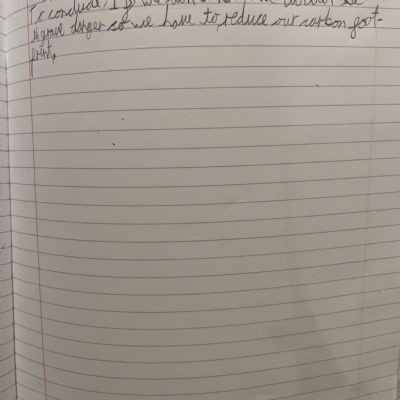 To conclude, If we
in grave danger so we have to reduce our carbon foot-
print,